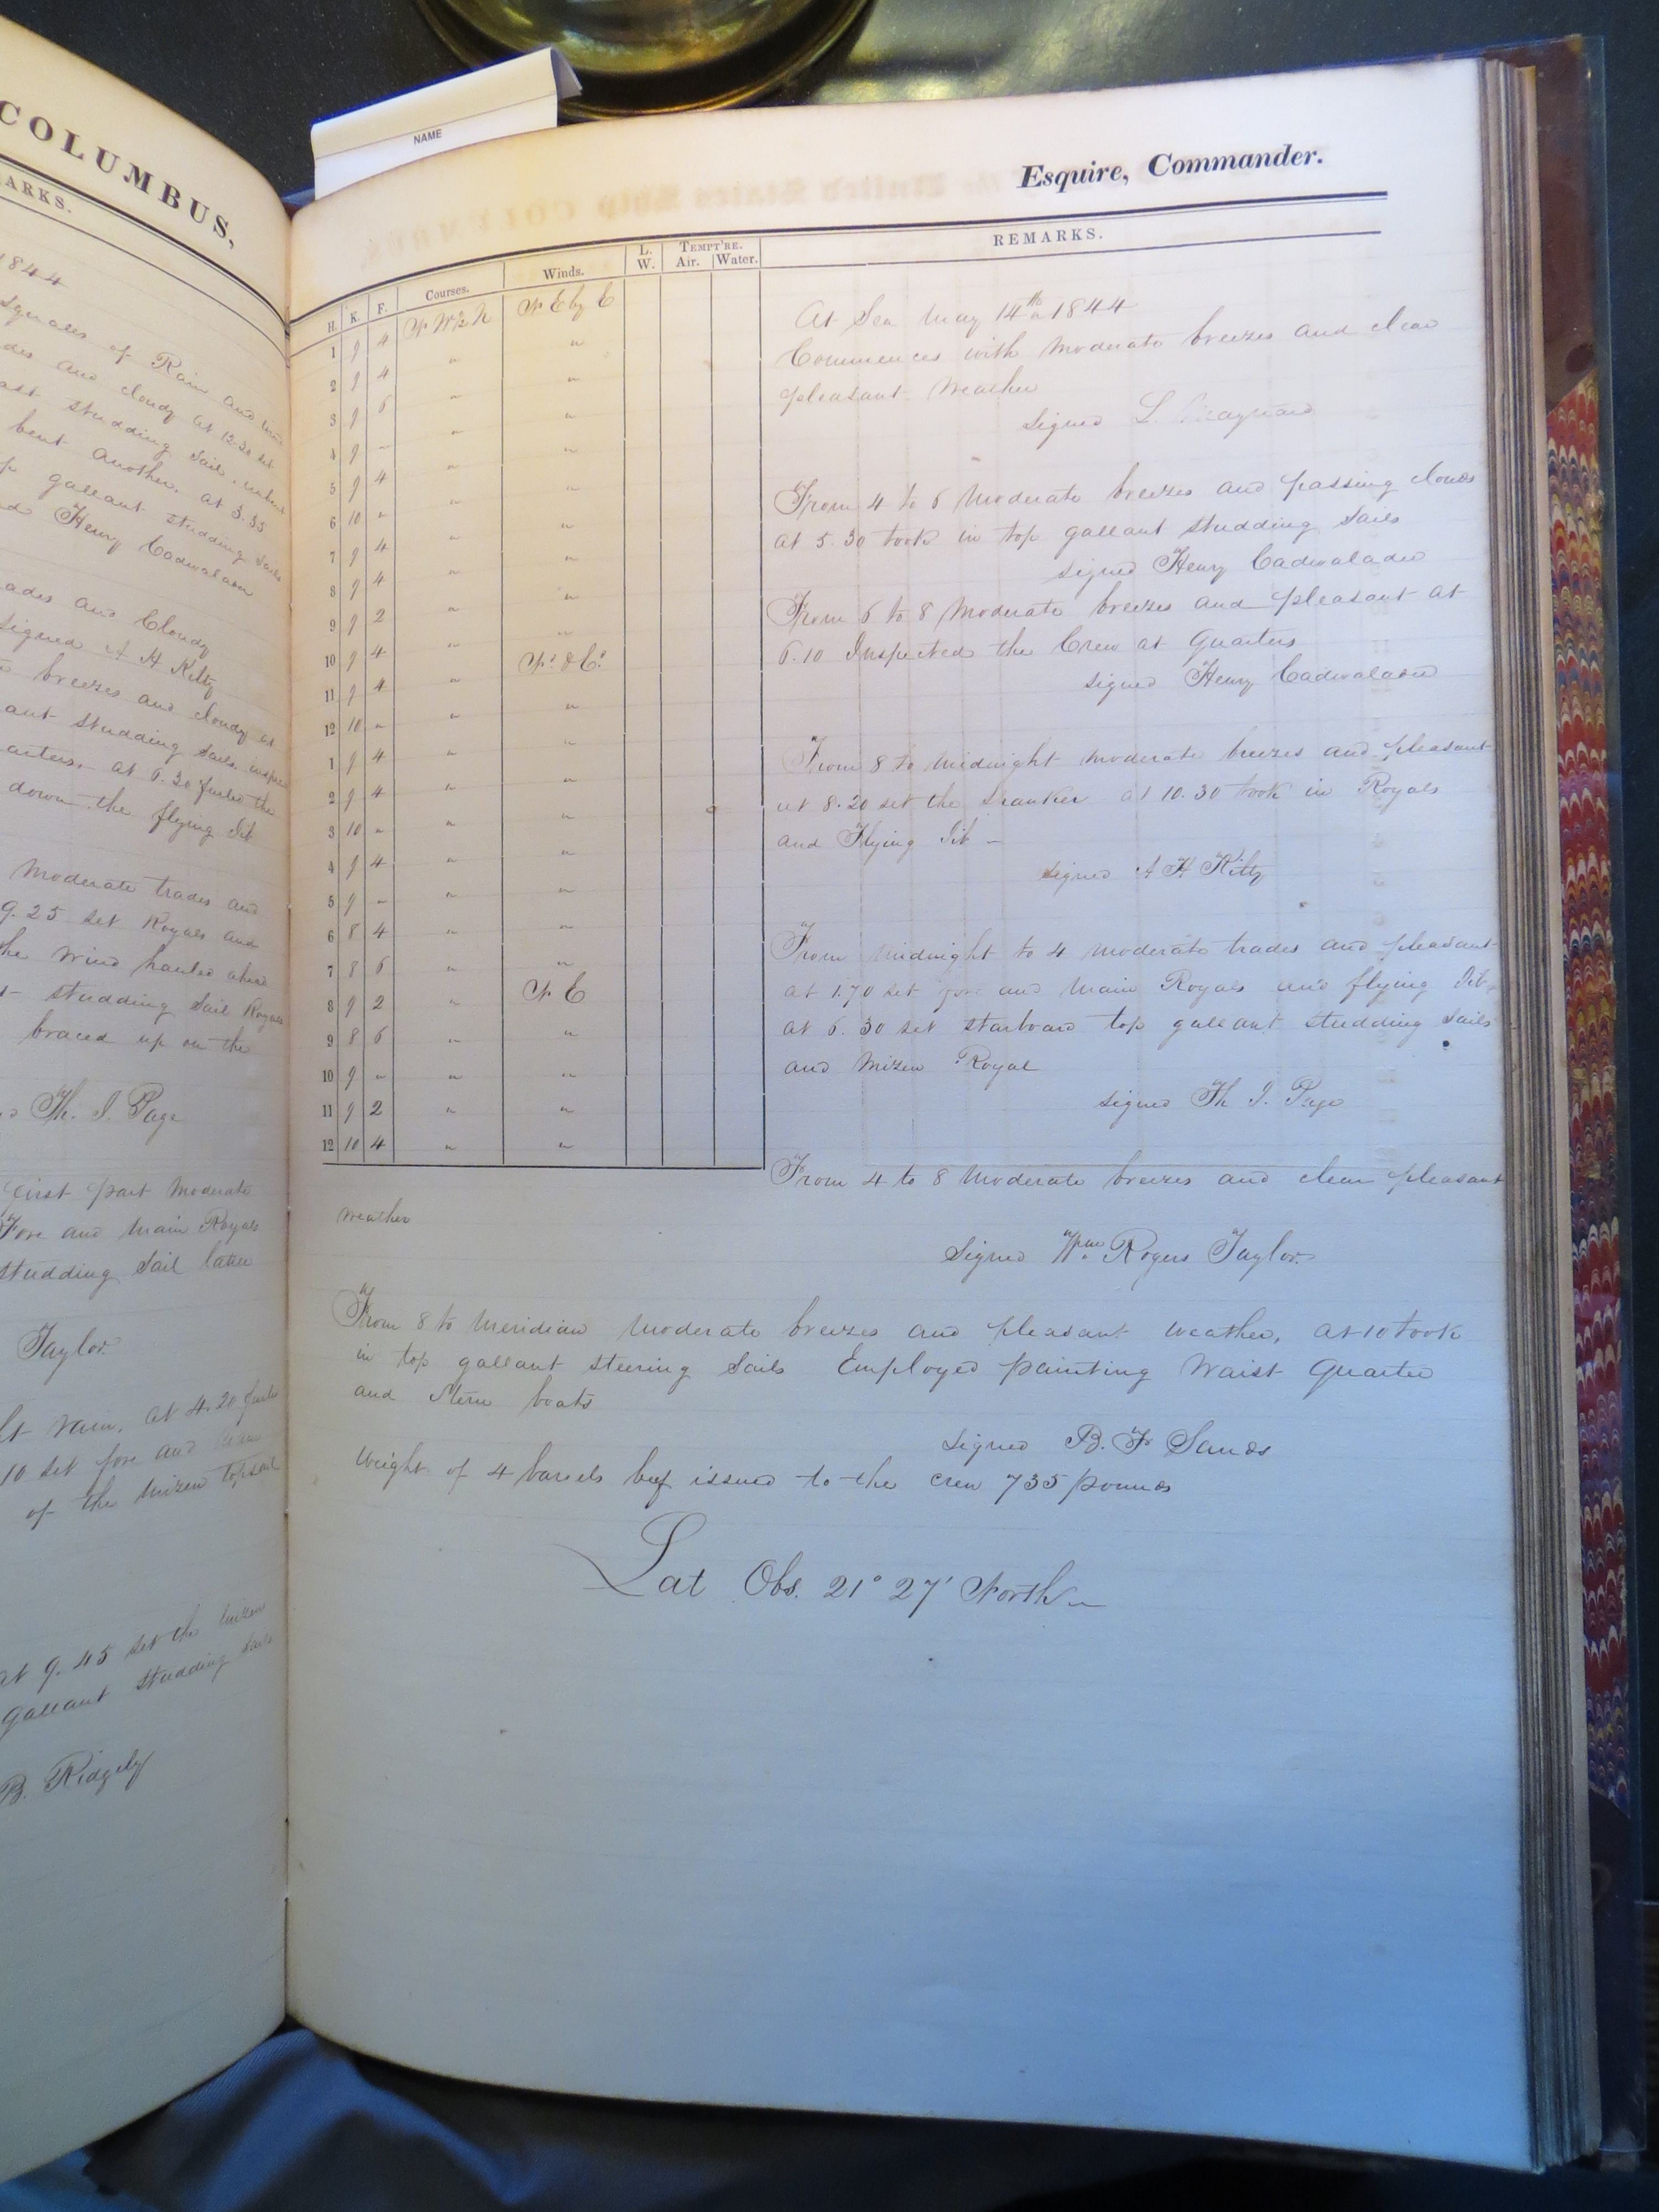 COLUMBUS,
ARKS.
1844
squales of Rain and
des and cloudy at 12.20 set
ast studding Sail, unbent
bent another. at 3.35
gallant studding Sails
Henry Cadwalader
ades and Cloudy
signed A H Kilty
breezes and cloudy at
ant studding Sails
arters, at 6.30 furled the
down the flying Jib
Moderate trades and
9.25 set Royals and
the Wind hauled ahead
studding Sail Royals
braced up on the
Th. J. Page
first part Moderate
Fore and Main Royals
studding Sail
Taylor
rain, at 4.20
10 set fore and
of the Mizen topsail
at 9.45 set the Mizen
gallant studding Sails
B. Ridgely
NAME
Esquire, Commander.
H. K. F. Courses. Winds. L. W. TEMPT'RE. Air. Water. REMARKS.
1 9 4 N W ½ N N E by E
2 9 4 " "
3 9 6 " "
4 9 " " "
5 9 4 " "
6 10 " " "
7 9 4 " "
8 9 4 " "
9 9 2 " "
10 9 4 " "
11 9 4 "
12 10 " " "
1 9 4 " "
2 9 4 " "
3 10 " " "
4 9 4 " "
5 9 " " "
6 8 4 " "
7 8 6 " "
8 9 2 " N E
9 8 6 " "
10 9 " " "
11 9 2 " "
12 10 4 " "
At Sea May 14th 1844
Commences with Moderate breezes and clear
pleasant Weather
Signed L. Maynard
From 4 to 6 Moderate breezes and passing clouds
at 5.30 took in top gallant studding Sails
signed Henry Cadwalader
From 6 to 8 Moderate breezes and pleasant at
6.10 Inspected the Crew at Quarters
signed Henry Cadwalader
From 8 to Midnight Moderate breezes and pleasant
at 8.20 set the Spanker at 10.30 took in Royals
and Flying Jib –
signed A H Kilty
From Midnight to 4 Moderate trades and pleasant
at set fore and Main Royals and flying Jib,
at 6.30 set starboard top gallant studding Sails
and Mizen Royal
signed Th J. Page
From 4 to 8 Moderate breezes and clear pleasant
Weather
Signed Wm Rogers Taylor
From 8 to Meridian Moderate breezes and pleasant weather, at 10 took
in top gallant steering Sails Employed painting Waist Quarter
and Stern boats
Signed B. F Sands
Weight of 4 barrels beef issued to the crew 735 pounds
Lat Obs. 21° 27' North